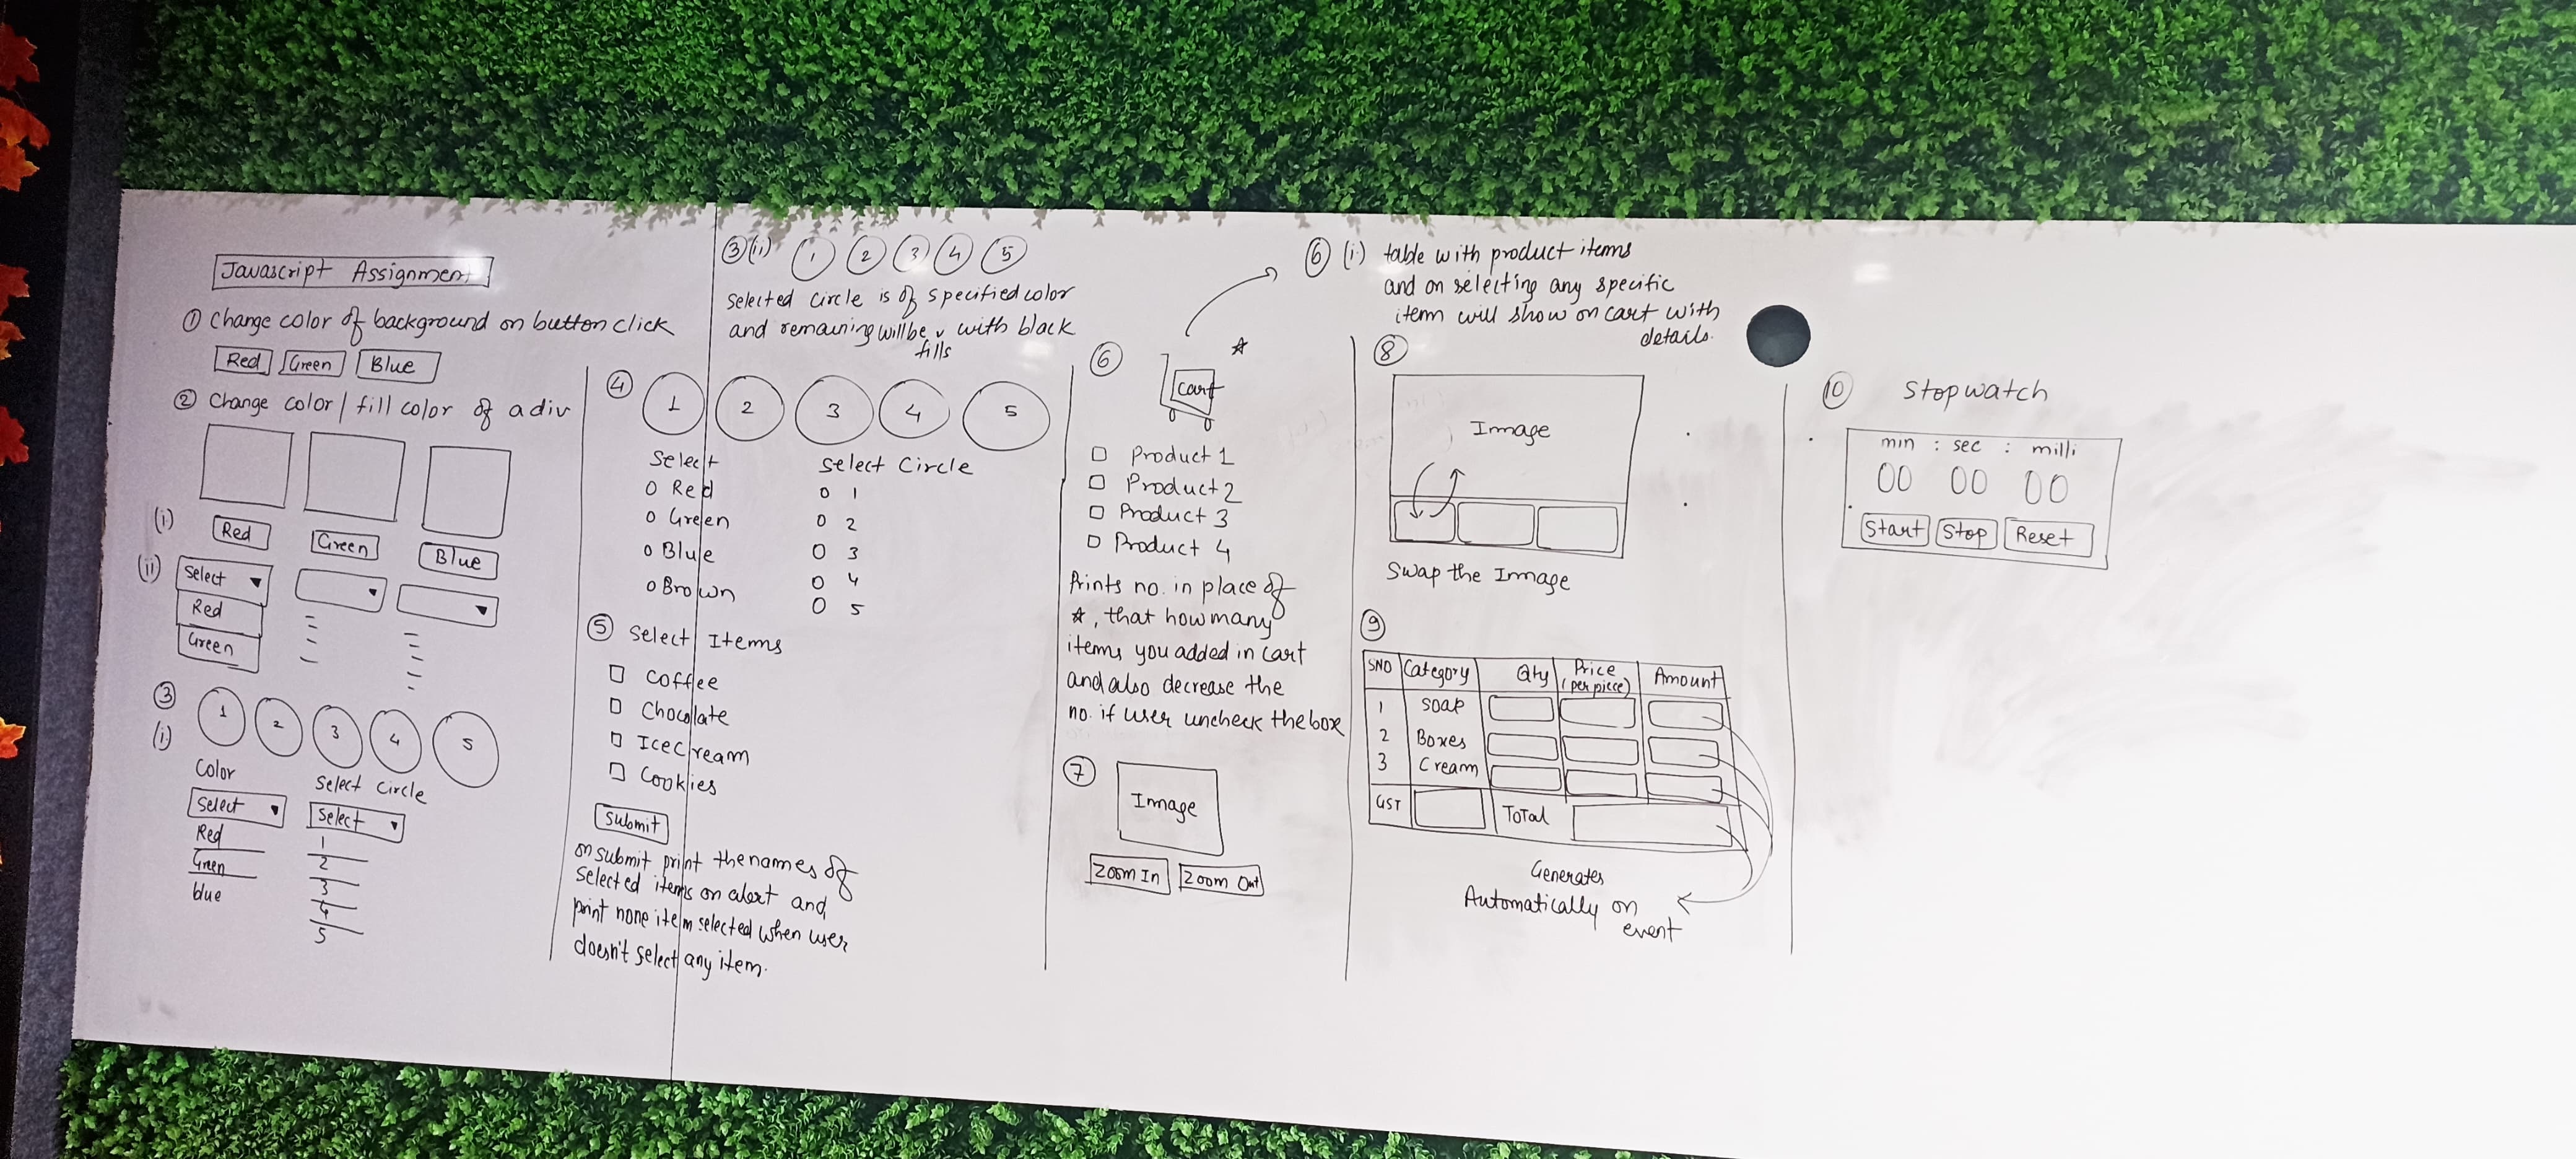 Javascript Assignment
① Change color of background on button click
Red Green Blue
② Change color / fill color of a div
(i) Red Green Blue
(ii) Select
Red
Green
③
(i) 1 2 3 4 5
Color Select Circle
Select Select
Red 1
Green 2
blue 3
4
5
③(ii) 1 2 3 4 5
Selected circle is of specified color
and remaining will be fills with black
④ 1 2 3 4 5
Select Select Circle
Red 1
Green 2
Blue 3
Brown 4
5
⑤ Select Items
Coffee
Chocolate
IceCream
Cookies
Submit
on submit print the names of
selected items on alert and
print none item selected when user
doesn't select any item.
⑥ Cart ☆
Product 1
Product 2
Product 3
Product 4
Prints no. in place of
☆, that how many
items you added in cart
and also decrease the
no. if user uncheck the box
⑦ Image
Zoom In Zoom Out
⑥ (i) table with product items
and on selecting any specific
item will show on cart with
details.
⑧
Image
Swap the Image
⑨
SNO Category Qty Price (per piece) Amount
1 Soap
2 Boxes
3 Cream
GST Total
Generates
Automatically on
event
⑩ Stopwatch
min : sec : milli
00 00 00
Start Stop Reset